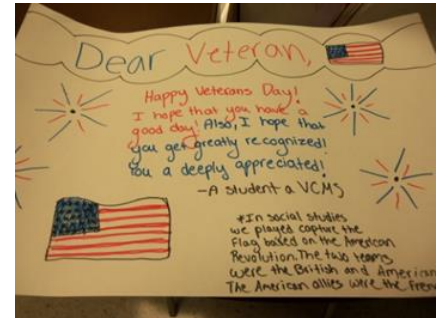 Dear Veteran,
Happy Veterans Day!
I hope that you have a
good day! Also, I hope that
you get greatly recognized!
You a deeply appreciated!
-A student a VCMS
*In social studies
we played capture the
Flag based on the American
Revolution. The two teams
were the British and American
The American allies were the Fren